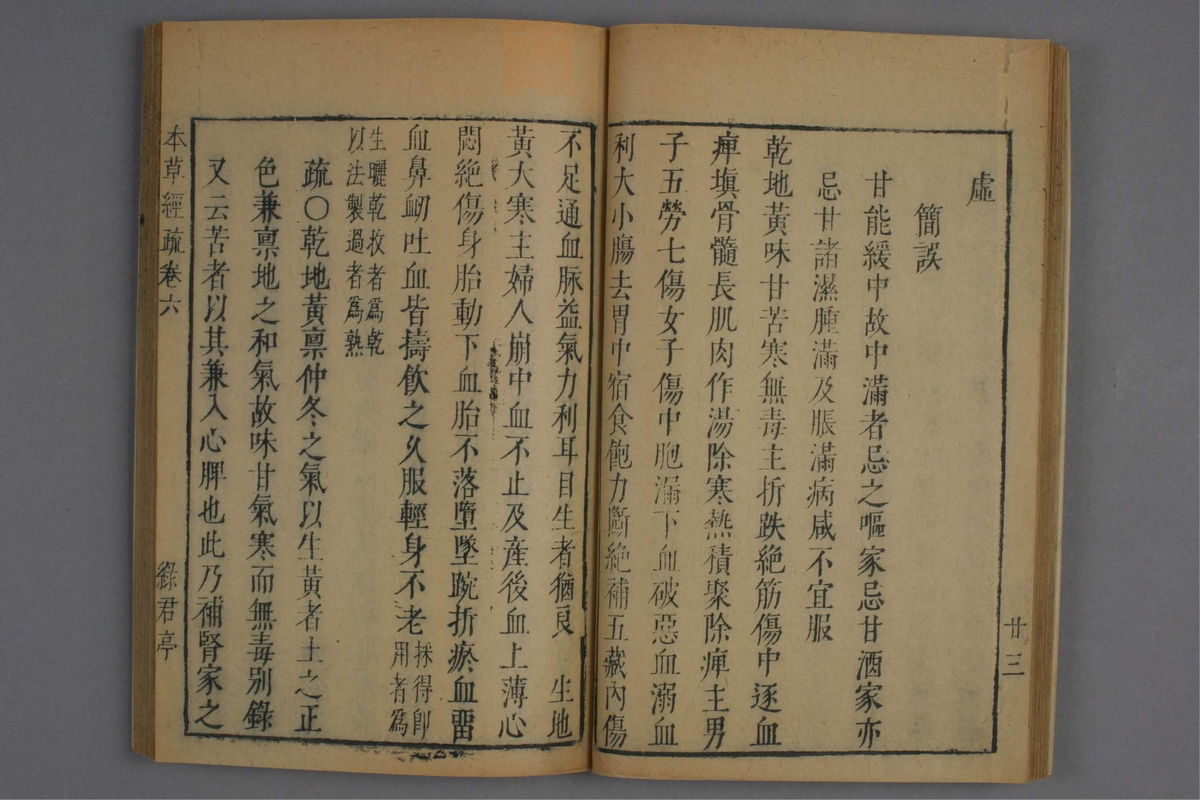 虛
簡誤
甘能緩中故中滿者忌之嘔家忌甘酒家亦
忌甘諸濕腫滿及脹滿病咸不宜服
乾地黃味甘苦寒無毒主折跌絕筋傷中逐血
痺塡骨髓長肌肉作湯除寒熱積聚除痺主男
子五勞七傷女子傷中胞漏下血破惡血溺血
利大小腸去胃中宿食飽力斷絕補五藏內傷
廿三
不足通血脉益氣力利耳目生者猶良 生地
黃大寒主婦人崩中血不止及産後血上薄心
悶絕傷身胎動下血胎不落墮墜踠折瘀血畱
血鼻衂吐血皆擣飮之久服輕身不老採得卽用者爲
生曬乾收者爲乾
以法製過者爲熟
疏○乾地黃禀仲冬之氣以生黃者土之正
色兼禀地之和氣故味甘氣寒而無毒別錄
又云苦者以其兼入心脾也此乃補腎家之
本草經疏卷六
綠君亭